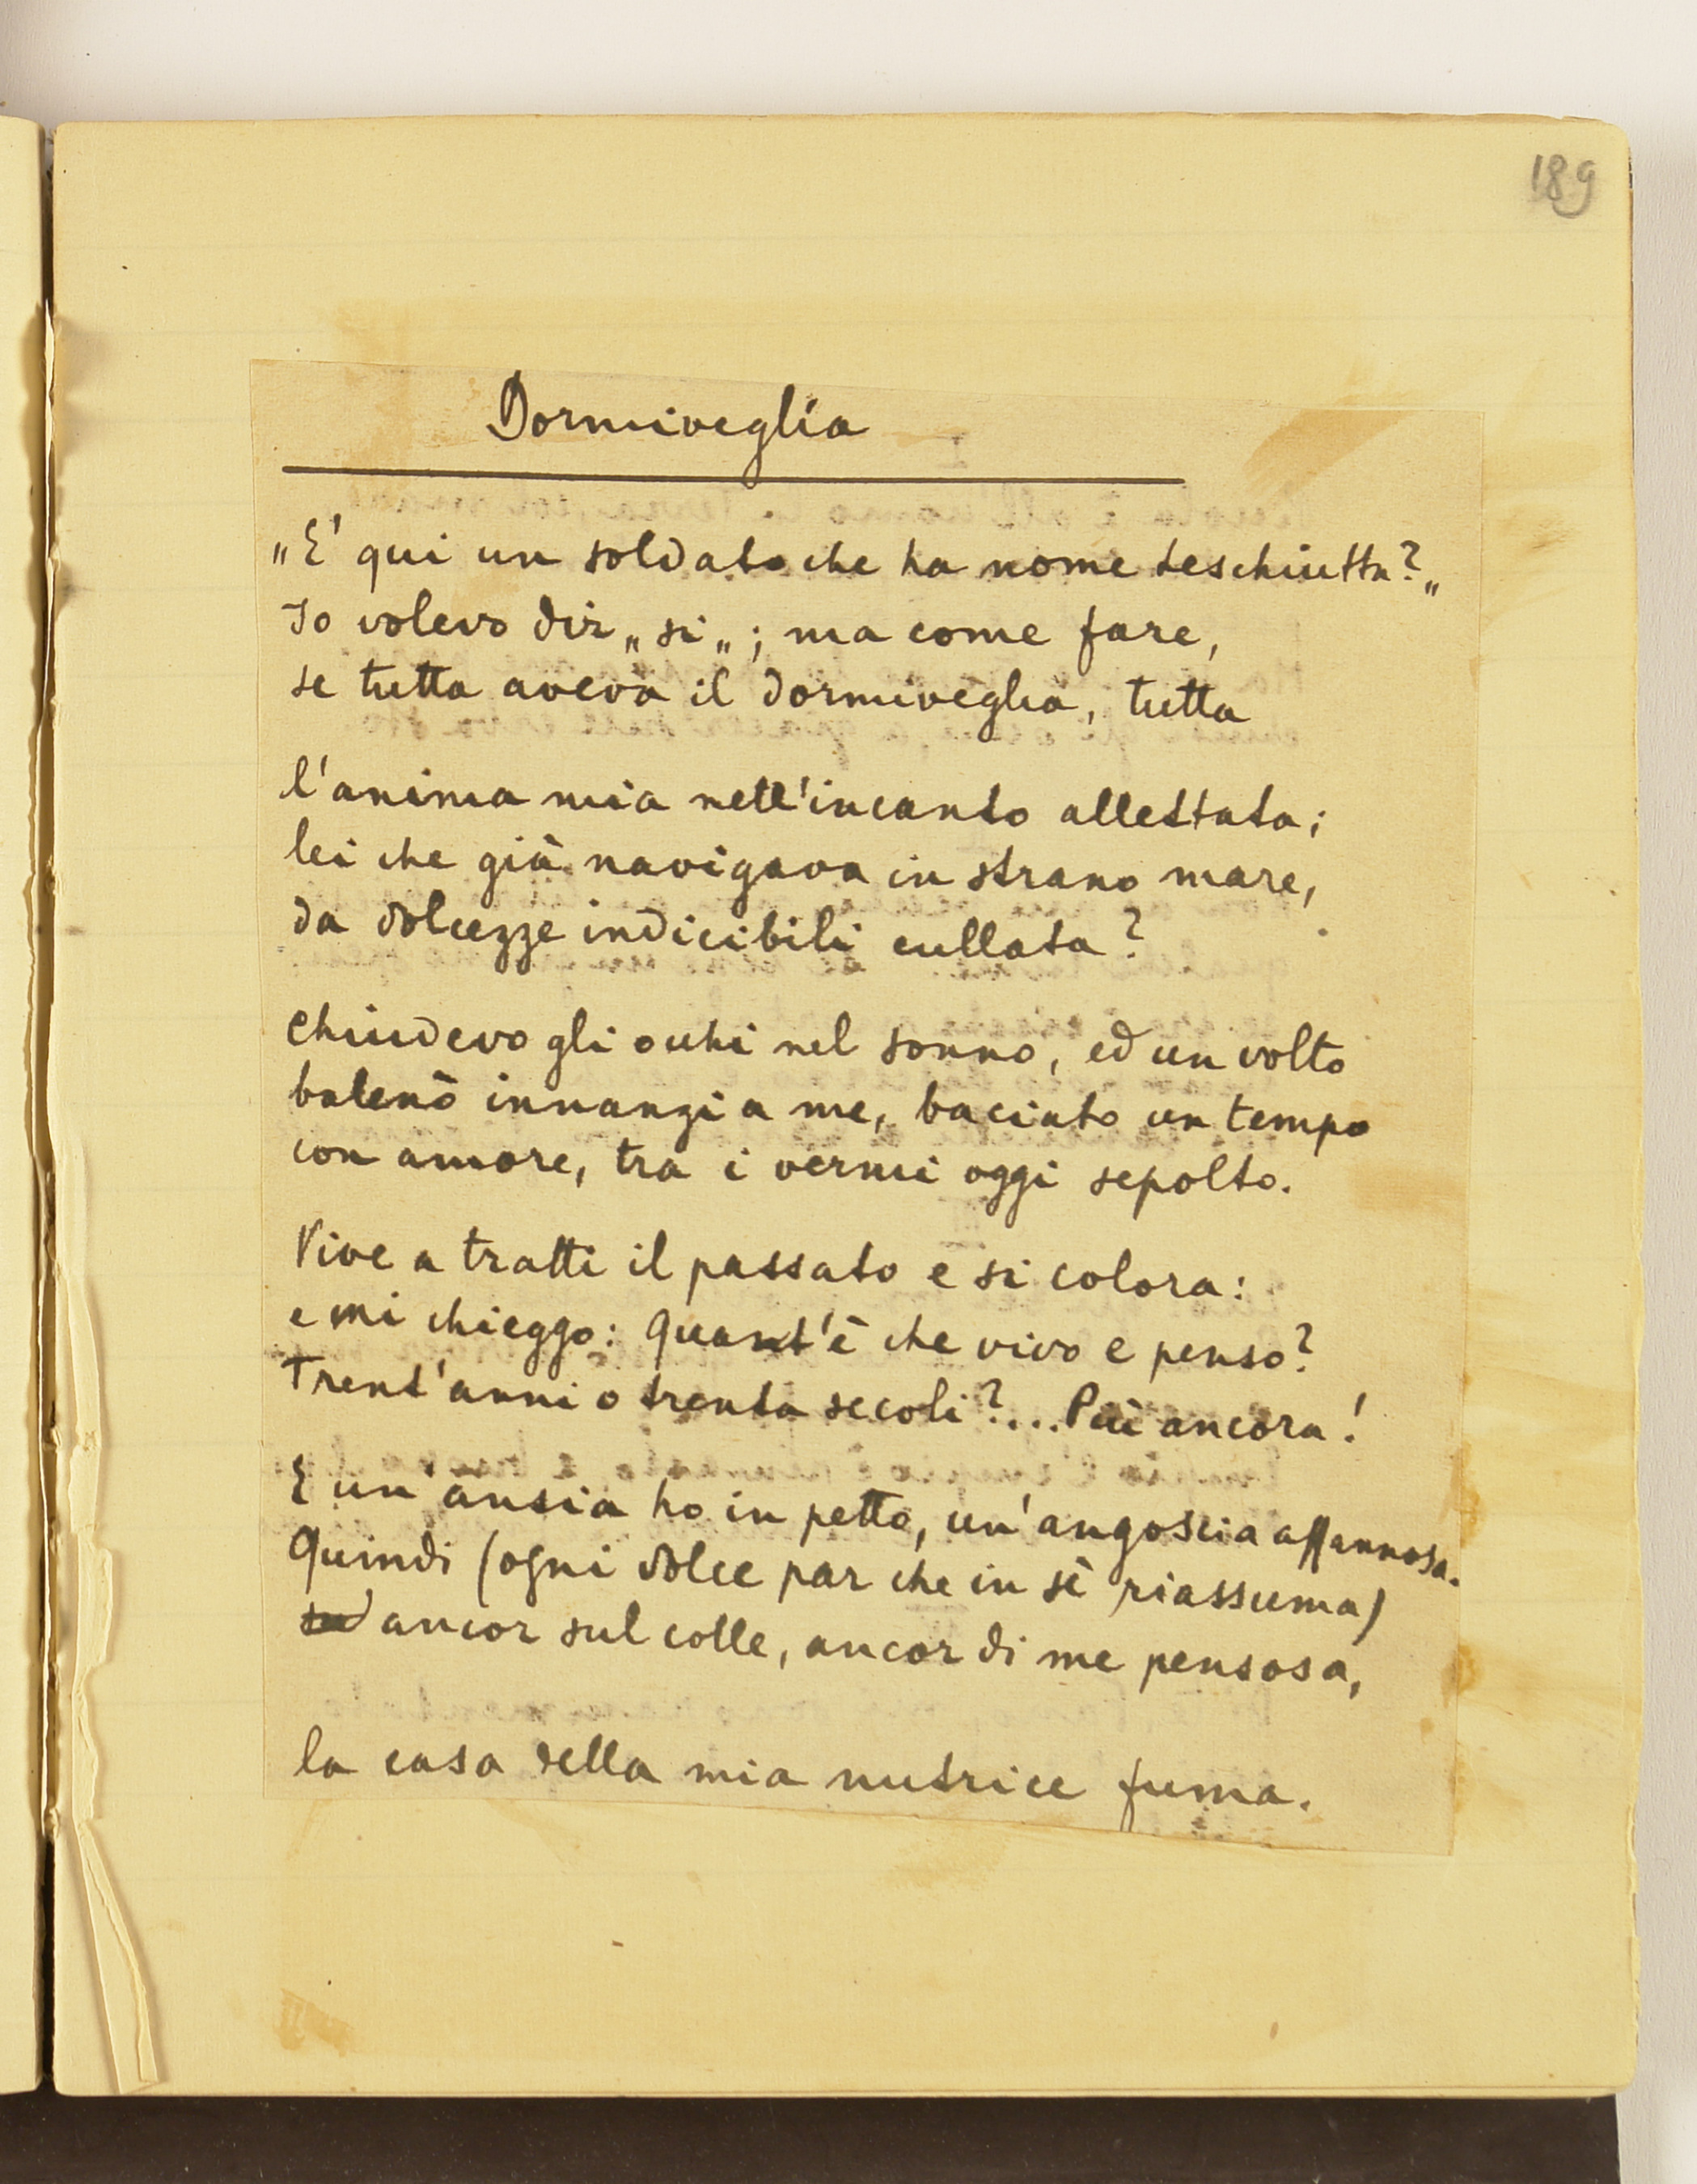 189
Dormiveglia
„E' qui un soldato che ha nome Teschiutta?„
Io volevo dir „si„; ma come fare,
se tutta aveva il dormiveglia, tutta
l'anima mia nell'incanto allettata;
lei che già navigava in strano mare,
da dolcezze indicibili cullata?
Chiudevo gli occhi nel sonno, ed un volto
balenò innanzi a me, baciato un tempo
con amore, tra i vermi oggi sepolto.
Vive a tratti il passato e si colora:
e mi chieggo: Quant'è che vivo e penso?
Trent'anni o trenta secoli?...Più ancora!
E un'ansia ho in petto, un'angoscia affannosa.
Quindi (ogni dolce par che in sè riassuma)
ancor sul colle, ancor di me pensosa,
la casa della mia nutrice fuma.